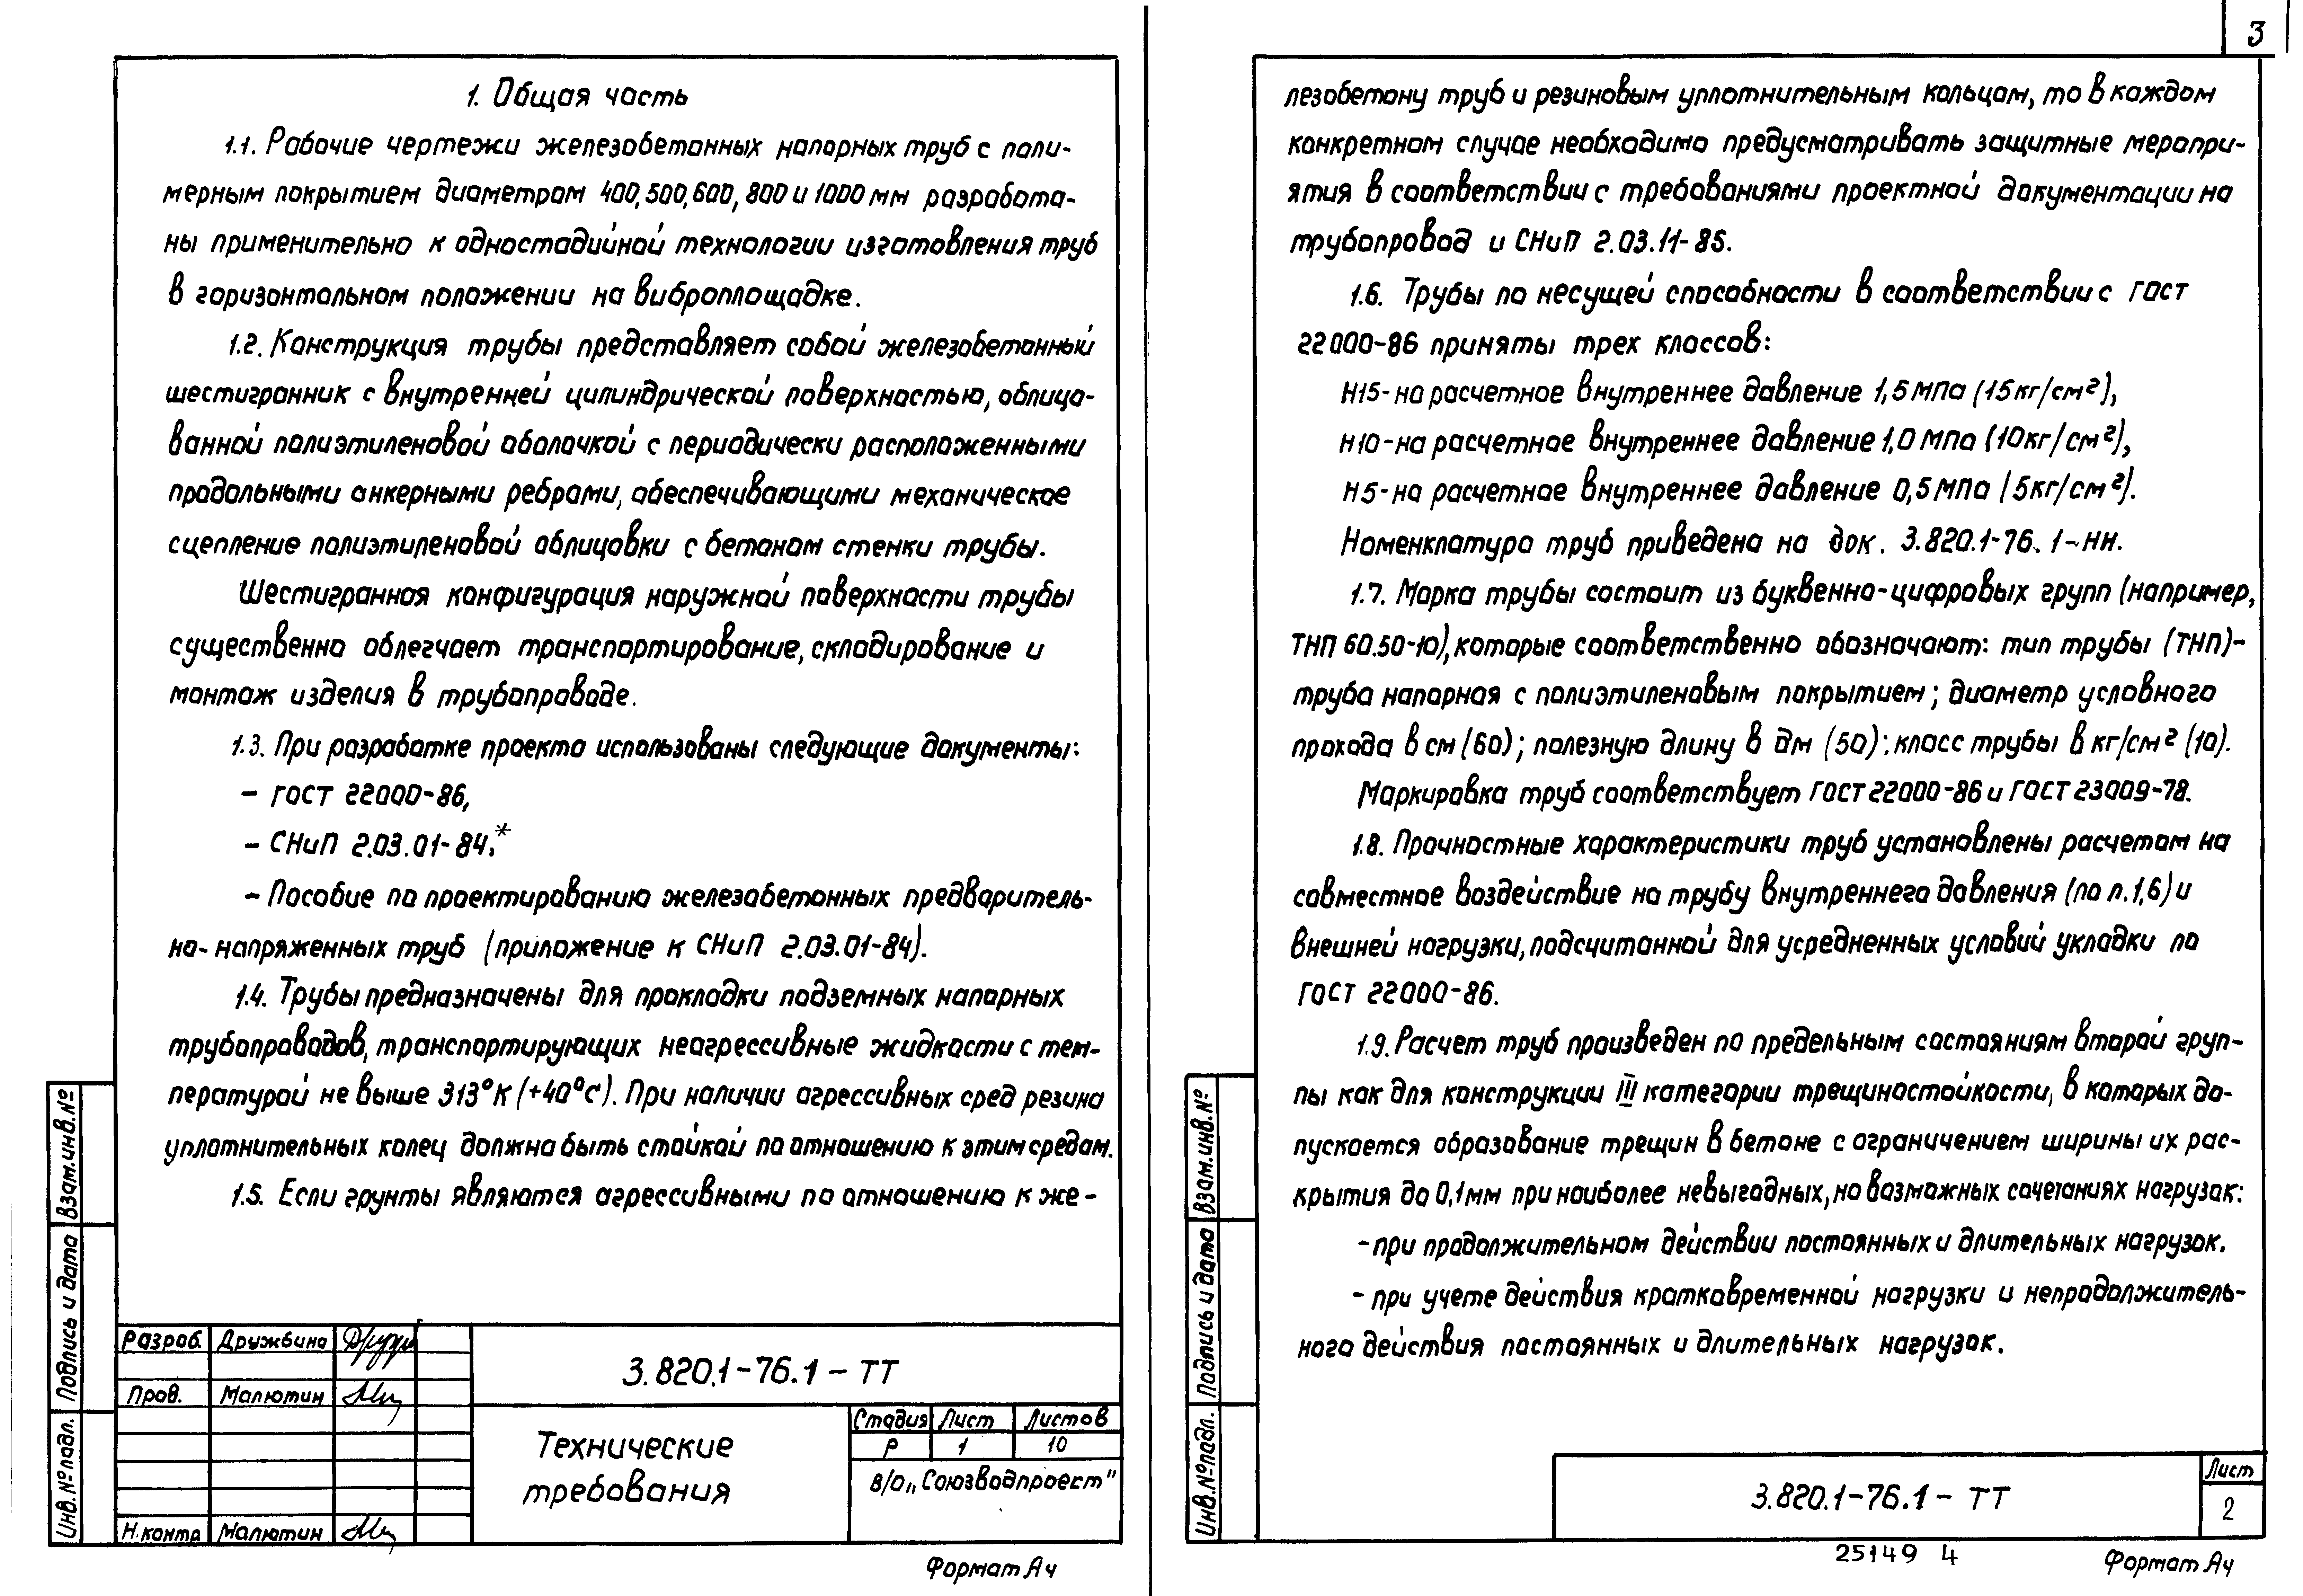 1. Общая часть
1.1. Рабочие чертежи железобетонных напорных труб с поли-
мерным покрытием диаметром 400, 500, 600, 800 и 1000 мм разработа-
ны применительно к одностадийной технологии изготовления труб
в горизонтальном положении на виброплощадке.
1.2. Конструкция трубы представляет собой железобетонный
шестигранник с внутренней цилиндрической поверхностью, облицо-
ванной полиэтиленовой оболочкой с периодически расположенными
продольными анкерными ребрами, обеспечивающими механическое
сцепление полиэтиленовой облицовки с бетоном стенки трубы.
Шестигранная конфигурация наружной поверхности трубы
существенно облегчает транспортирование, складирование и
монтаж изделия в трубопроводе.
1.3. При разработке проекта использованы следующие документы:
– ГОСТ 22000-86,
– СНиП 2.03.01-84.*
– Пособие по проектированию железобетонных предваритель-
но-напряженных труб (приложение к СНиП 2.03.01-84).
1.4. Трубы предназначены для прокладки подземных напорных
трубопроводов, транспортирующих неагрессивные жидкости с тем-
пературой не выше 313°К (+40°С). При наличии агрессивных сред резина
уплотнительных колец должна быть стойкой по отношению к этим средам.
1.5. Если грунты являются агрессивными по отношению к же-
Взам. инв. №
Подпись и дата
Инв. № подл.
Разраб. Дружбина
Пров. Малютин
Н. контр Малютин
3.820.1-76.1 – ТТ
Технические
требования
Стадия Лист Листов
Р 1 10
В/О „Союзводпроект"
Формат А4
3
лезобетону труб и резиновым уплотнительным кольцам, то в каждом
конкретном случае необходимо предусматривать защитные меропри-
ятия в соответствии с требованиями проектной документации на
трубопровод и СНиП 2.03.11-85.
1.6. Трубы по несущей способности в соответствии с ГОСТ
22000-86 приняты трех классов:
Н15-на расчетное внутреннее давление 1,5 МПа (15кг/см²),
Н10-на расчетное внутреннее давление 1,0 МПа (10кг/см²),
Н5-на расчетное внутреннее давление 0,5 МПа (5кг/см²).
Номенклатура труб приведена на док. 3.820.1-76.1-НИ.
1.7. Марка трубы состоит из буквенно-цифровых групп (например,
ТНП 60.50-10), которые соответственно обозначают: тип трубы (ТНП)-
труба напорная с полиэтиленовым покрытием; диаметр условного
прохода в см (60); полезную длину в дм (50); класс трубы в кг/см² (10).
Маркировка труб соответствует ГОСТ 22000-86 и ГОСТ 23009-78.
1.8. Прочностные характеристики труб установлены расчетом на
совместное воздействие на трубу внутреннего давления (по п.1,6) и
внешней нагрузки, подсчитанной для усредненных условий укладки по
ГОСТ 22000-86.
1.9. Расчет труб произведен по предельным состояниям второй груп-
пы как для конструкции III категории трещиностойкости, в которых до-
пускается образование трещин в бетоне с ограничением ширины их рас-
крытия до 0,1мм при наиболее невыгодных, но возможных сочетаниях нагрузок:
-при продолжительном действии постоянных и длительных нагрузок.
- при учете действия кратковременной нагрузки и непродолжитель-
ного действия постоянных и длительных нагрузок.
Взам. инв. №
Подпись и дата
Инв. № подл.
3.820.1-76.1 – ТТ
Лист
2
25149 4
Формат А4